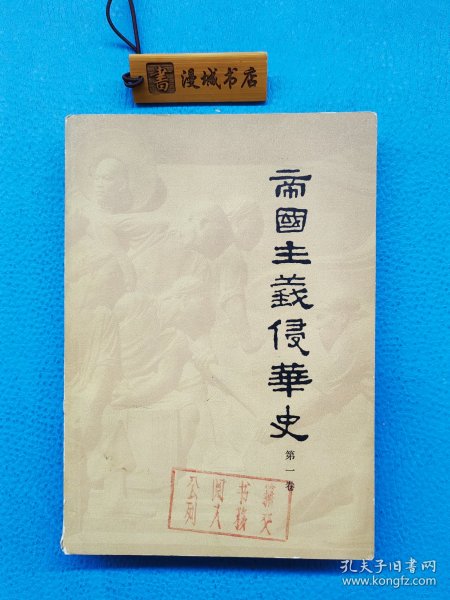 書 漫城书店
帝國主義侵華史
第一卷
孔夫子旧书网
www.kongfz.com